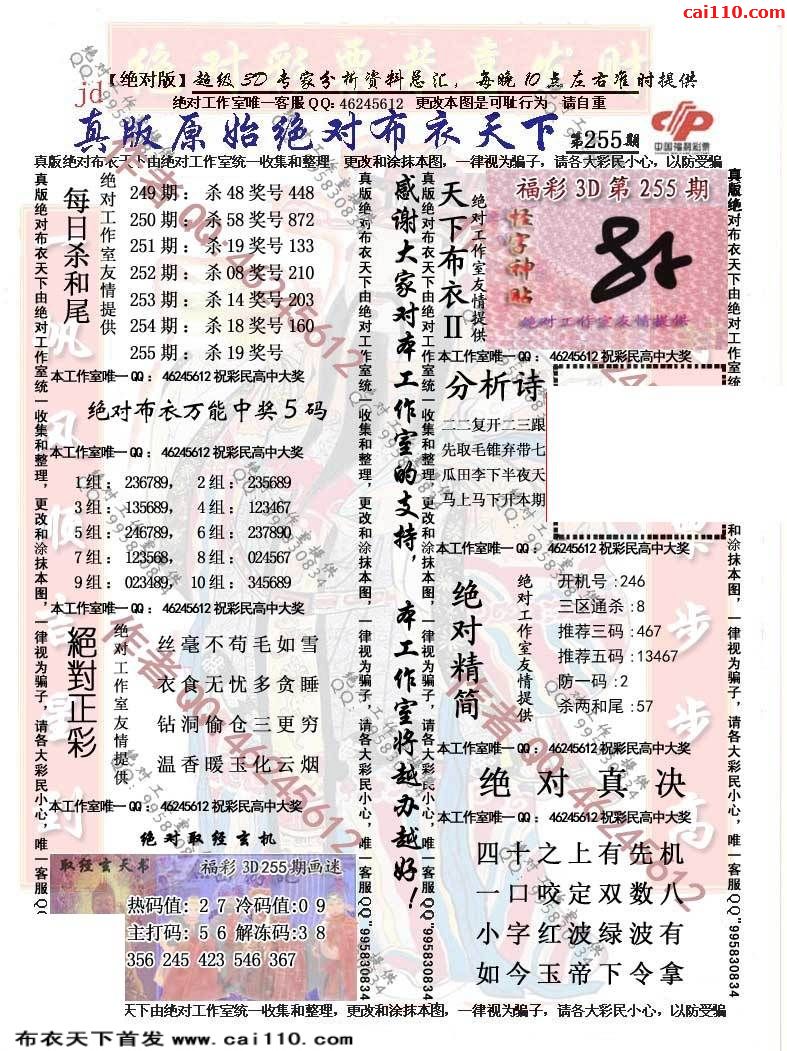 cai110.com
绝对彩票恭喜发财
【绝对版】超级3D专家分析资料总汇，每晚10点左右准时提供
jd
绝对工作室唯一客服QQ: 46245612 更改本图是可耻行为 请自重
真版原始绝对布衣天下 第255期
中国福利彩票
真版绝对布衣天下由绝对工作室统一收集和整理，更改和涂抹本图，一律视为骗子，请各大彩民小心，以防受骗
每日杀和尾
绝对工作室友情提供
249期：杀48奖号448
250期：杀58奖号872
251期：杀19奖号133
252期：杀08奖号210
253期：杀14奖号203
254期：杀18奖号160
255期：杀19奖号
本工作室唯一QQ：46245612祝彩民高中大奖
绝对布衣万能中奖5码
本工作室唯一QQ：46245612祝彩民高中大奖
1组：236789，2组：235689
3组：135689，4组：123467
5组：246789，6组：237890
7组：123568，8组：024567
9组：023489，10组：345689
本工作室唯一QQ：46245612祝彩民高中大奖
絕對正彩
绝对工作室友情提供
丝毫不苟毛如雪
衣食无忧多贪睡
钻洞偷仓三更穷
温香暖玉化云烟
本工作室唯一QQ：46245612祝彩民高中大奖
绝对取经玄机
取经玄天书
福彩3D255期画迷
热码值：27冷码值:09
主打码：56解冻码:38
356 245 423 546 367
真版绝对布衣天下由绝对工作室统一收集和整理，更改和涂抹本图，一律视为骗子，请各大彩民小心，唯一客服QQ"995830834
感谢大家对本工作室的支持，本工作室将越办越好！
天下布衣II
绝对工作室友情提供
福彩3D第255期
怪字神贴
绝对工作室友情提供
本工作室唯一QQ：46245612祝彩民高中大奖
分析诗
二二复开二三跟
先取毛锥弃带七
瓜田李下半夜天
马上马下开本期
本工作室唯一QQ：46245612祝彩民高中大奖
绝对精简
绝对工作室友情提供
开机号:246
三区通杀:8
推荐三码:467
推荐五码:13467
防一码:2
杀两和尾:57
本工作室唯一QQ：46245612祝彩民高中大奖
绝对真决
本工作室唯一QQ：46245612祝彩民高中大奖
四十之上有先机
一口咬定双数八
小字红波绿波有
如今玉帝下令拿
天下由绝对工作室统一收集和整理，更改和涂抹本图，一律视为骗子，请各大彩民小心，以防受骗
作者QQ:46245612
绝对工作室提供
QQ:995830834
布衣天下首发 www.cai110.com